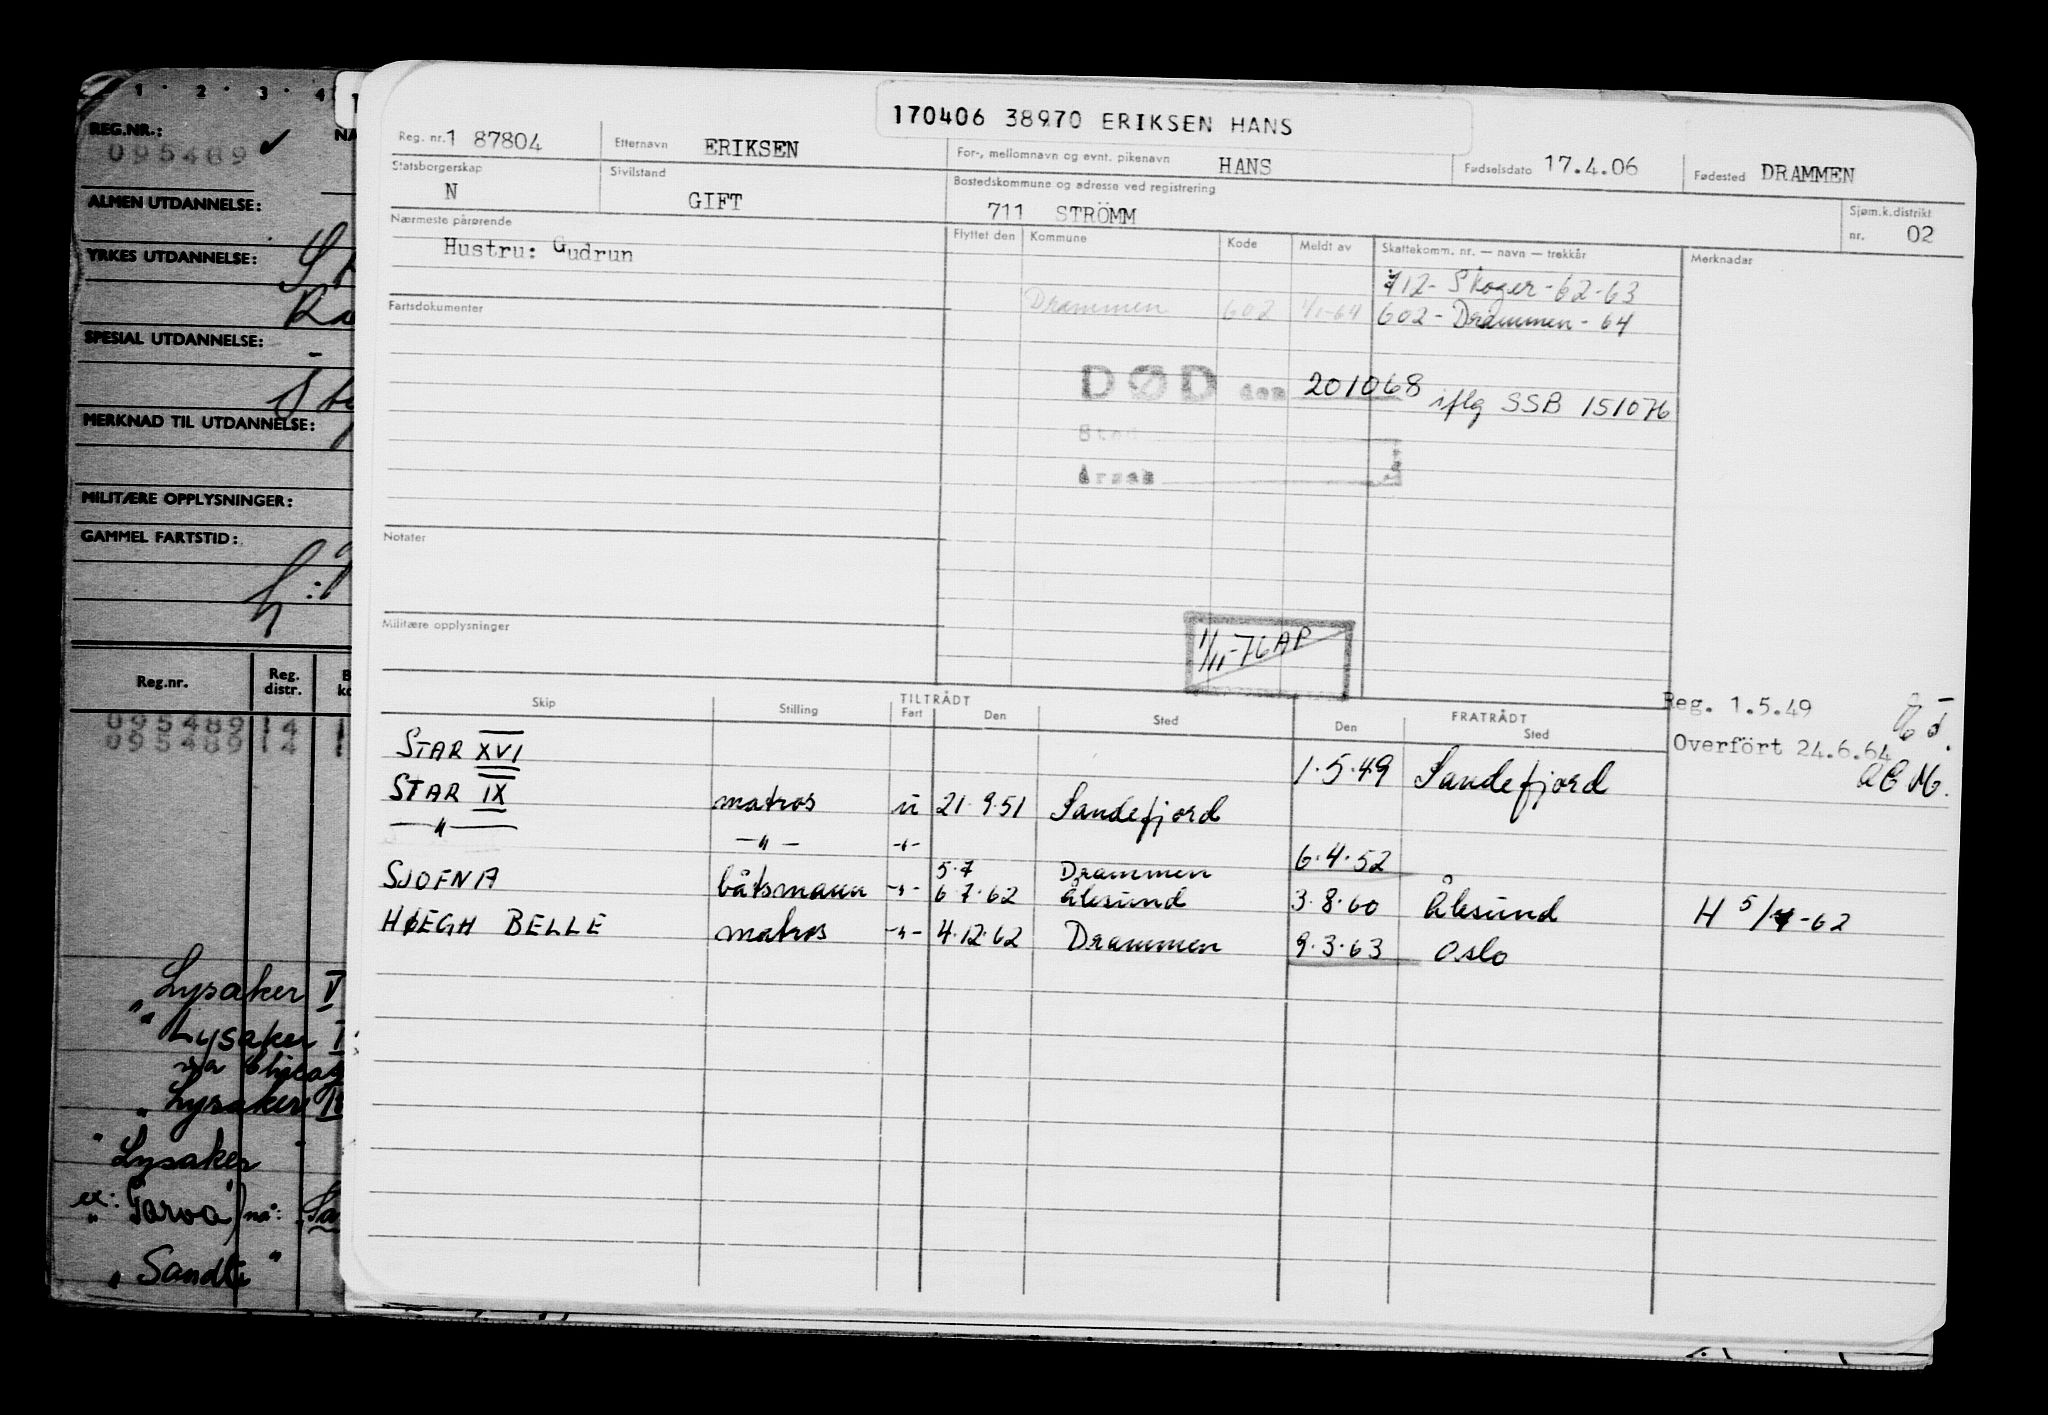 1 · 2 · 3 · 4
REG.NR.:
095489 ✓
ALMEN UTDANNELSE:
YRKES UTDANNELSE:
SPESIAL UTDANNELSE:
MERKNAD TIL UTDANNELSE:
MILITÆRE OPPLYSNINGER:
GAMMEL FARTSTID:
Reg.nr. Reg. distr.
095489 14
095489 14
"Lysaker V
"Lysaker
"Lysaker
"Lysaker"
ex: "Tarva" nå:
170406 38970 ERIKSEN HANS
Reg. nr. 1 87804 Etternavn ERIKSEN For-, mellomnavn og evnt. pikenavn HANS Fødselsdato 17.4.06 Fødested DRAMMEN
Statsborgerskap N Sivilstand GIFT Bostedskommune og adresse ved registrering 711 STRÖMM Sjøm.k.distrikt nr. 02
Nærmeste pårørende Flyttet den Kommune Kode Meldt av Skattekomm. nr. — navn — trekkår Merknader
Hustru: Gudrun
712- Skoger-62-63
Fartsdokumenter
Drammen 602 4/1-64 602 - Drammen - 64
DØD den 201068 iflg SSB 151076
Sted
Årsak
Notater
Militære opplysninger
1/11-76 AP
Skip Stilling TILTRÅDT Fart Den Sted FRATRÅDT Den Sted
Reg. 1.5.49
Overfört 24.6.64
STAR XVI 1.5.49 Sandefjord
STAR IX matros u 21.9.51 Sandefjord
—"— —"— -"- 6.4.52
5.7 Drammen
SJOFNA båtsmann -"- 6.7.62 Ålesund 3.8.60 Ålesund H 5/7-62
HØEGH BELLE matros -"- 4.12.62 Drammen 9.3.63 Oslo